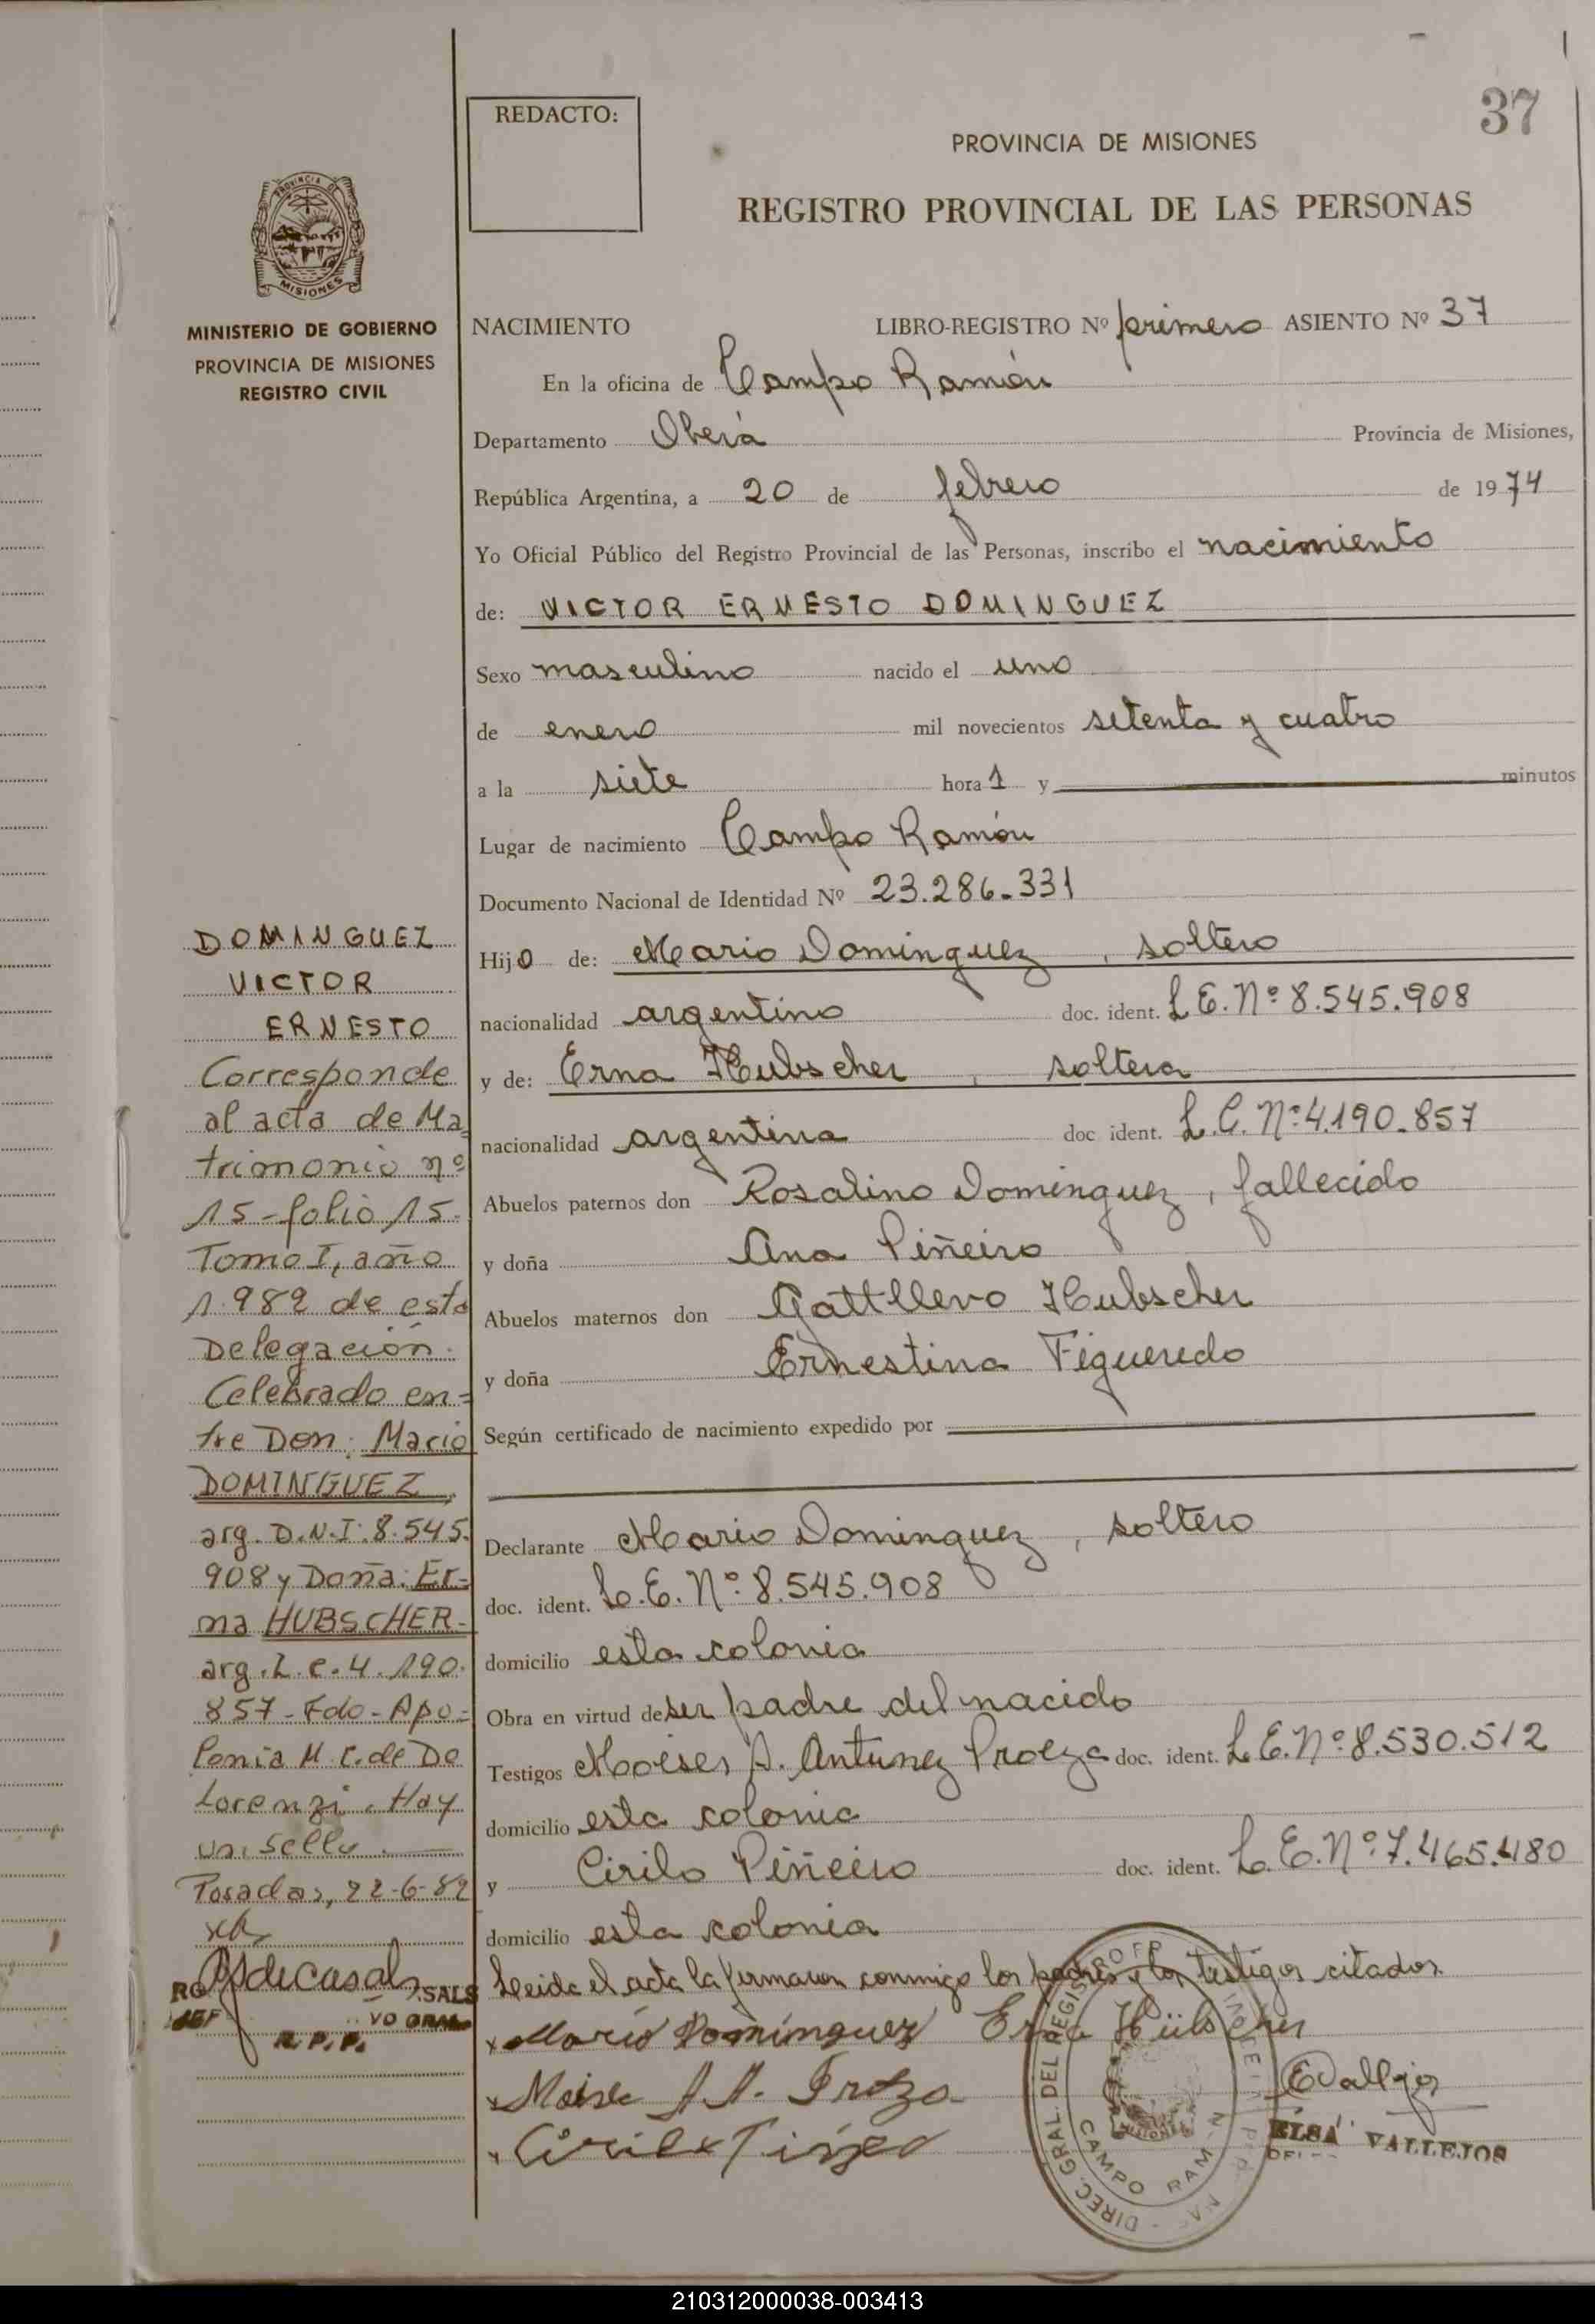 37
REDACTO:
PROVINCIA DE MISIONES
REGISTRO PROVINCIAL DE LAS PERSONAS
PROVINCIA DE
MISIONES
MINISTERIO DE GOBIERNO
PROVINCIA DE MISIONES
REGISTRO CIVIL
NACIMIENTO LIBRO-REGISTRO Nº primero ASIENTO Nº 37
En la oficina de Campo Ramón
Departamento Oberá Provincia de Misiones,
República Argentina, a 20 de febrero de 1974
Yo Oficial Público del Registro Provincial de las Personas, inscribo el nacimiento
de: VICTOR ERNESTO DOMINGUEZ
Sexo masculino nacido el uno
de enero mil novecientos setenta y cuatro
a la siete hora 1 y minutos
Lugar de nacimiento Campo Ramón
Documento Nacional de Identidad Nº 23.286.331
Hijo de: Mario Dominguez, soltero
nacionalidad argentino doc. ident. L.E. Nº 8.545.908
y de: Erna Hubscher, soltera
nacionalidad argentina doc ident. L.C. Nº 4.190.857
Abuelos paternos don Rosalino Dominguez, fallecido
y doña Ana Piñeiro
Abuelos maternos don Gattllevo Hubscher
y doña Ernestina Figueredo
Según certificado de nacimiento expedido por
Declarante Mario Dominguez, soltero
doc. ident. L.E. Nº 8.545.908
domicilio esta colonia
Obra en virtud de ser padre del nacido
Testigos Moises A. Antunez Proeza doc. ident. L.E. Nº 8.530.512
domicilio esta colonia
y Cirilo Piñeiro doc. ident. L.E. Nº 7.465.480
domicilio esta colonia
Leida el acta la firmaron conmigo los padres y los testigos citados
x Mario Dominguez Erna Hübscher
x Moise A. A.
EVallejos
ELSA VALLEJOS
DIREC. GRAL. DEL REGISTRO
CAMPO RAM N
DOMINGUEZ
VICTOR
ERNESTO
Corresponde
al acta de Ma
trimonio nº
15-folio 15.
Tomo I, año
1.982 de esta
Delegación.
Celebrado en=
tre Don: Mario
DOMINGUEZ,
arg. D.N.I. 8.545.
908 y Doña: Er-
na HUBSCHER-
arg. L.C. 4.190.
857-Fdo-Apo=
lonia M. C. de De
Lorenzi. Hay
un Sello.
Posadas, 22-6-82
R. P. P.
210312000038-003413